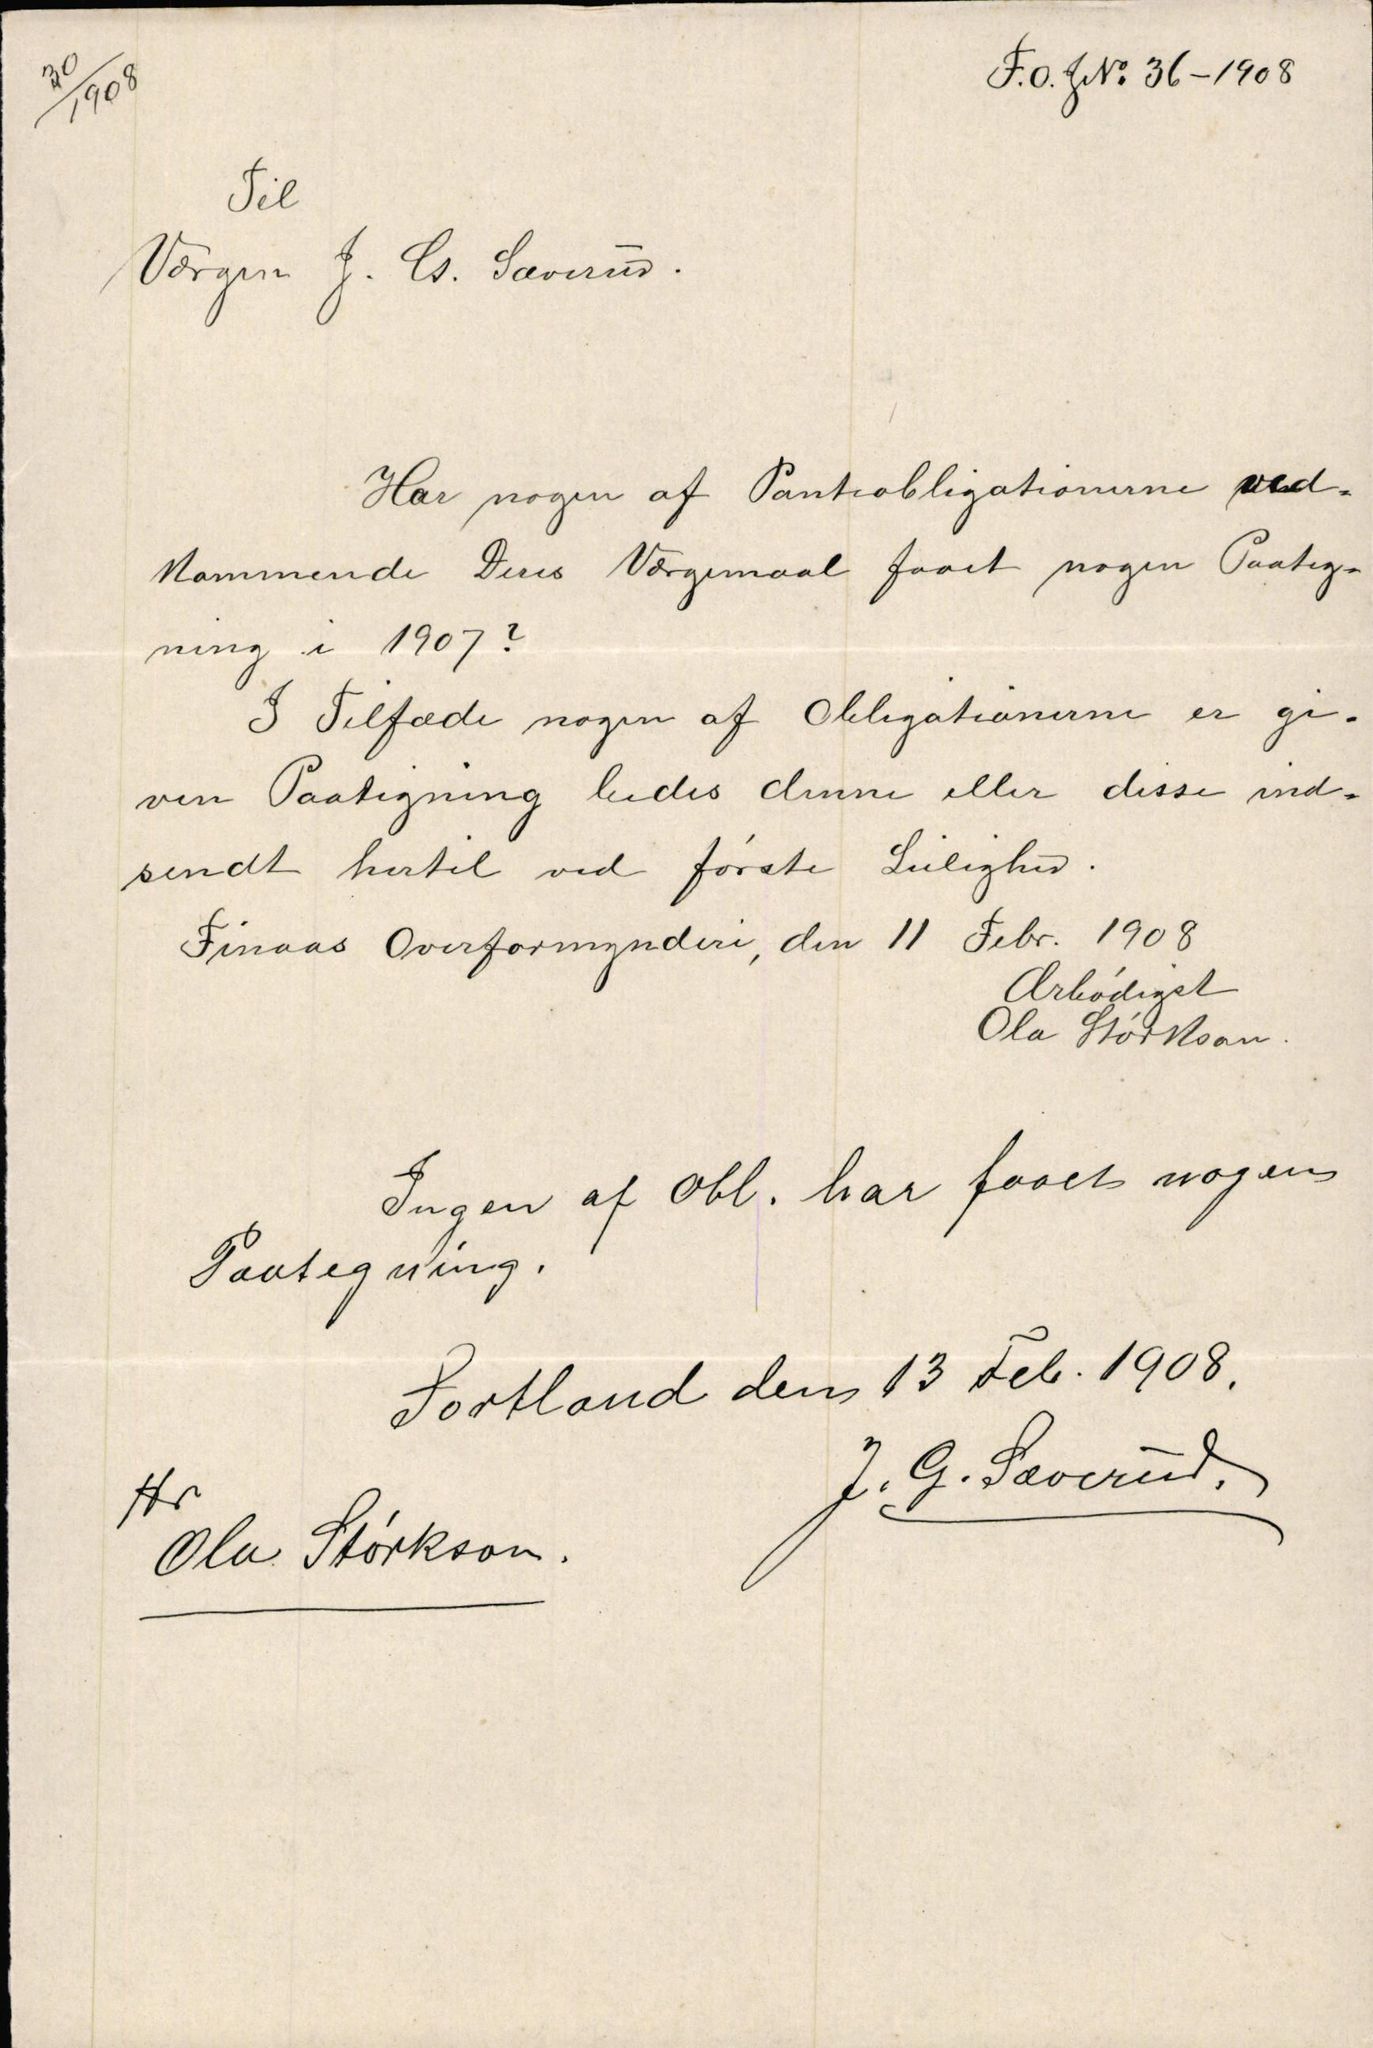 30/1908
F.O. J.No. 36-1908
Til
Værgen J. G. Sæverud.
Har nogen af Panteobligationerne ved-
kommende Deres Værgemaal faaet nogen Paateg-
ning i 1907?
I Tilfæde nogen af Obligationerne er gi-
ven Paategning bedes denne eller disse ind-
sendt hertil ved første Leilighed.
Finaas Overformynderi, den 11 Febr. 1908
Ærbødigst
Ola Størkson.
Ingen af Obl. har faaet nogen
Paategning.
Sortland den 13 Feb. 1908.
J. G. Sæverud.
Hr
Ola Størkson.